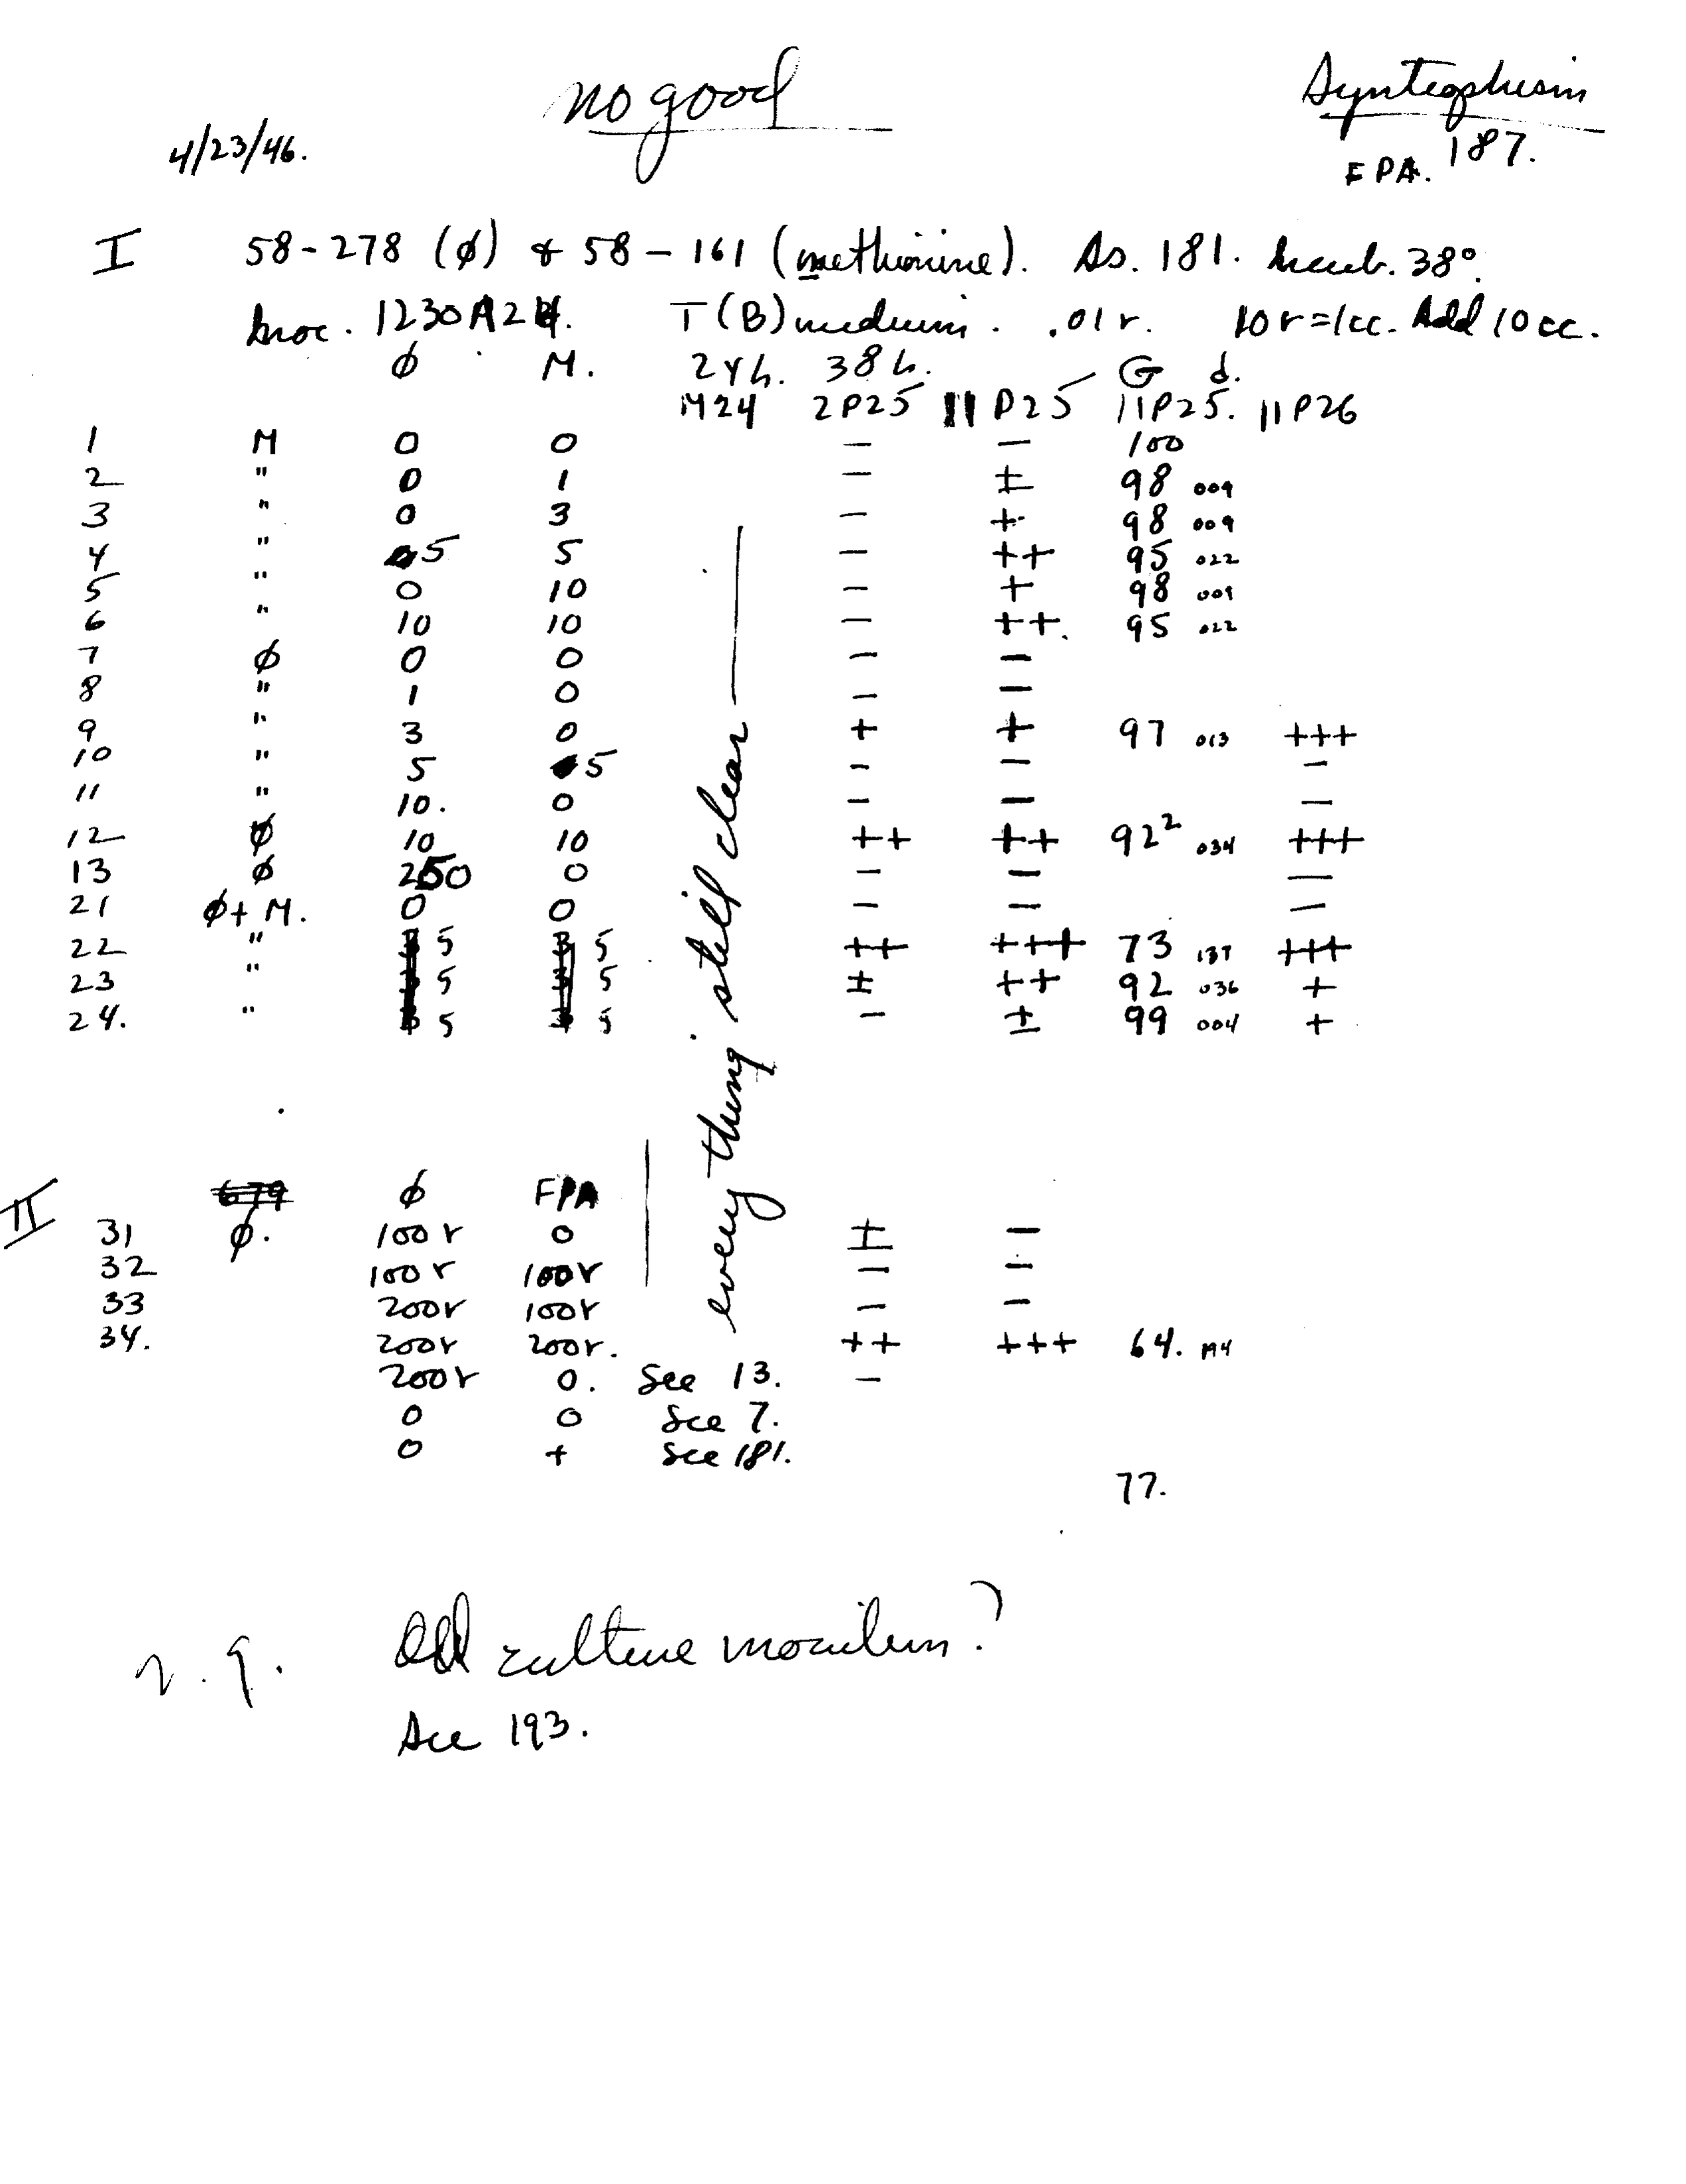 no good
Syntrophism
4/23/46.
FPA. 187.
I 58-278 (ø) & 58-161 (methionine). As. 181. Incub. 38°.
Inoc. 1230A24. T(B) medium. .01r. 10r=1cc. Add 10cc.
ø M. 24h. 38h. G d.
M24 2P25 11P25 11P25. 11P26
1 M 0 0 — — 100
2 " 0 1 — ± 98 009
3 " 0 3 — + 98 009
4 " 5 5 — ++ 95 022
5 " 0 10 — + 98 009
6 " 10 10 — ++. 95 022
7 ø 0 0 — —
8 " 1 0 — —
9 " 3 0 + + 97 013 +++
10 " 5 5 — — —
11 " 10. 0 — — —
12 ø 10 10 ++ ++ 92² 034 +++
13 ø 250 0 — — —
21 ø+M. 0 0 — — —
22 " 5 5 ++ +++ 73 137 +++
23 " 5 5 ± ++ 92 036 +
24. " 5 5 — ± 99 004 +
every thing still clear
II 679 ø FPA
31 ø. 100r 0 ± —
32 100r 100r — —
33 200r 100r — —
34. 200r 200r. ++ +++ 64.
200r 0. See 13. —
0 0 See 7.
0 + See 181.
77.
n.g. Old culture inoculum?
See 193.